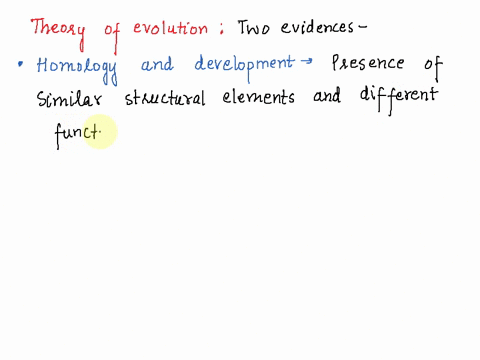 Theory of evolution : Two evidences -
• Homology and development → Presence of
Similar structural elements and different
funct